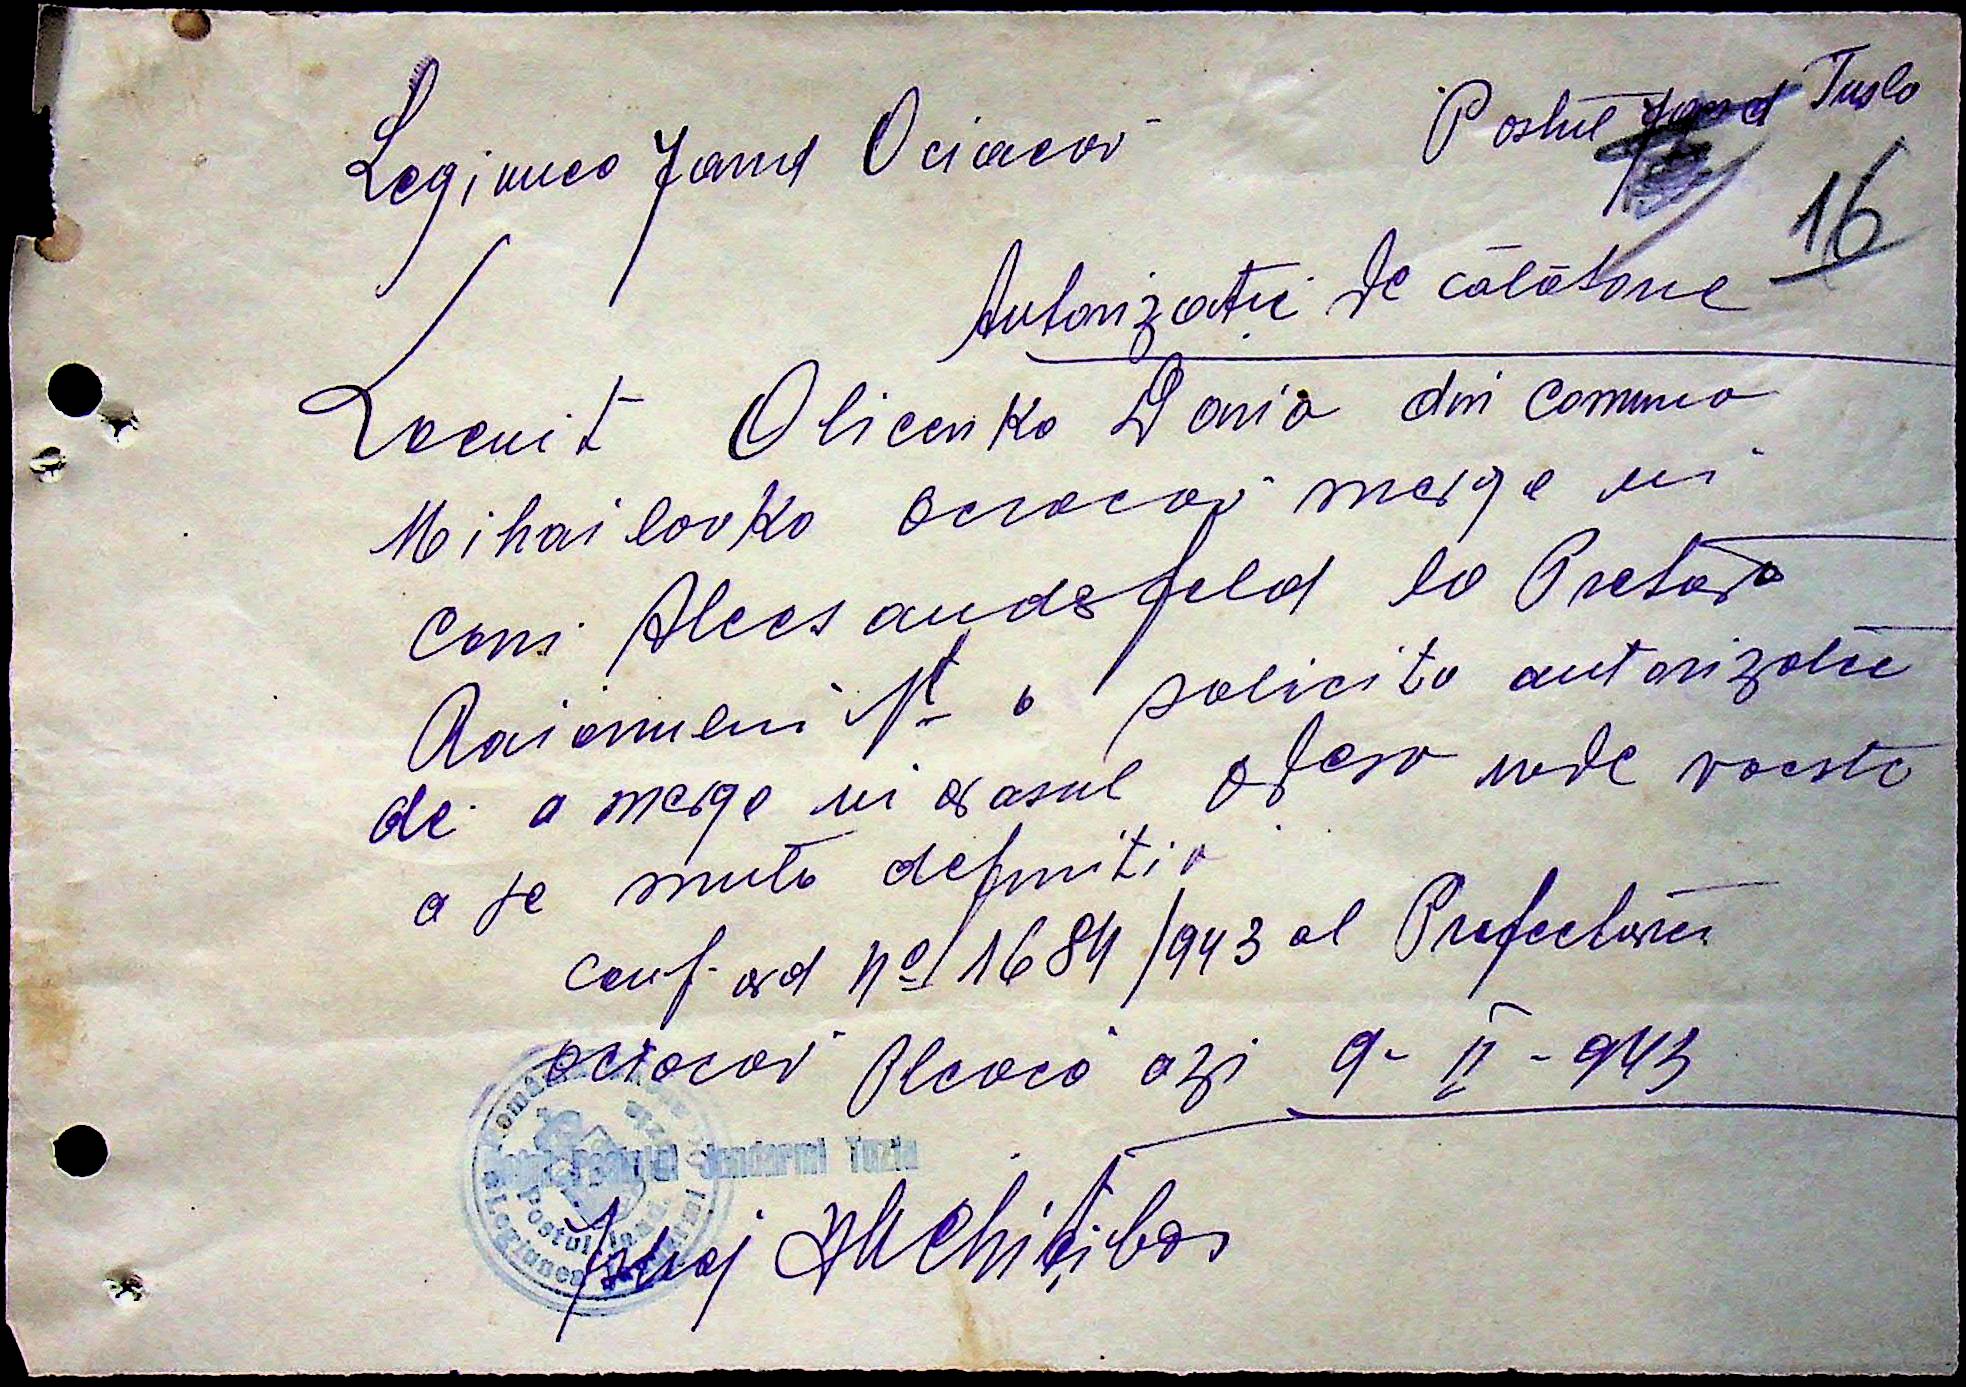 Legiunea Jand Ociacov
Postul Jand Tusla
16
Autorizatie de călătorie
Locuit Olicenko Daria din comuna
Mihailovka Ociacov merge in
com Alecsandrfeld la Pretura
Raionului No a solicita autorizatie
de a merge in orasul Odesa unde voeste
a se muta definitiv
conf. ord No 1684/943 al Prefecturei
Ociacov Pleacă azi 9-II-943
Jandarmi Tuzla
Postul Jand.
Legiunea